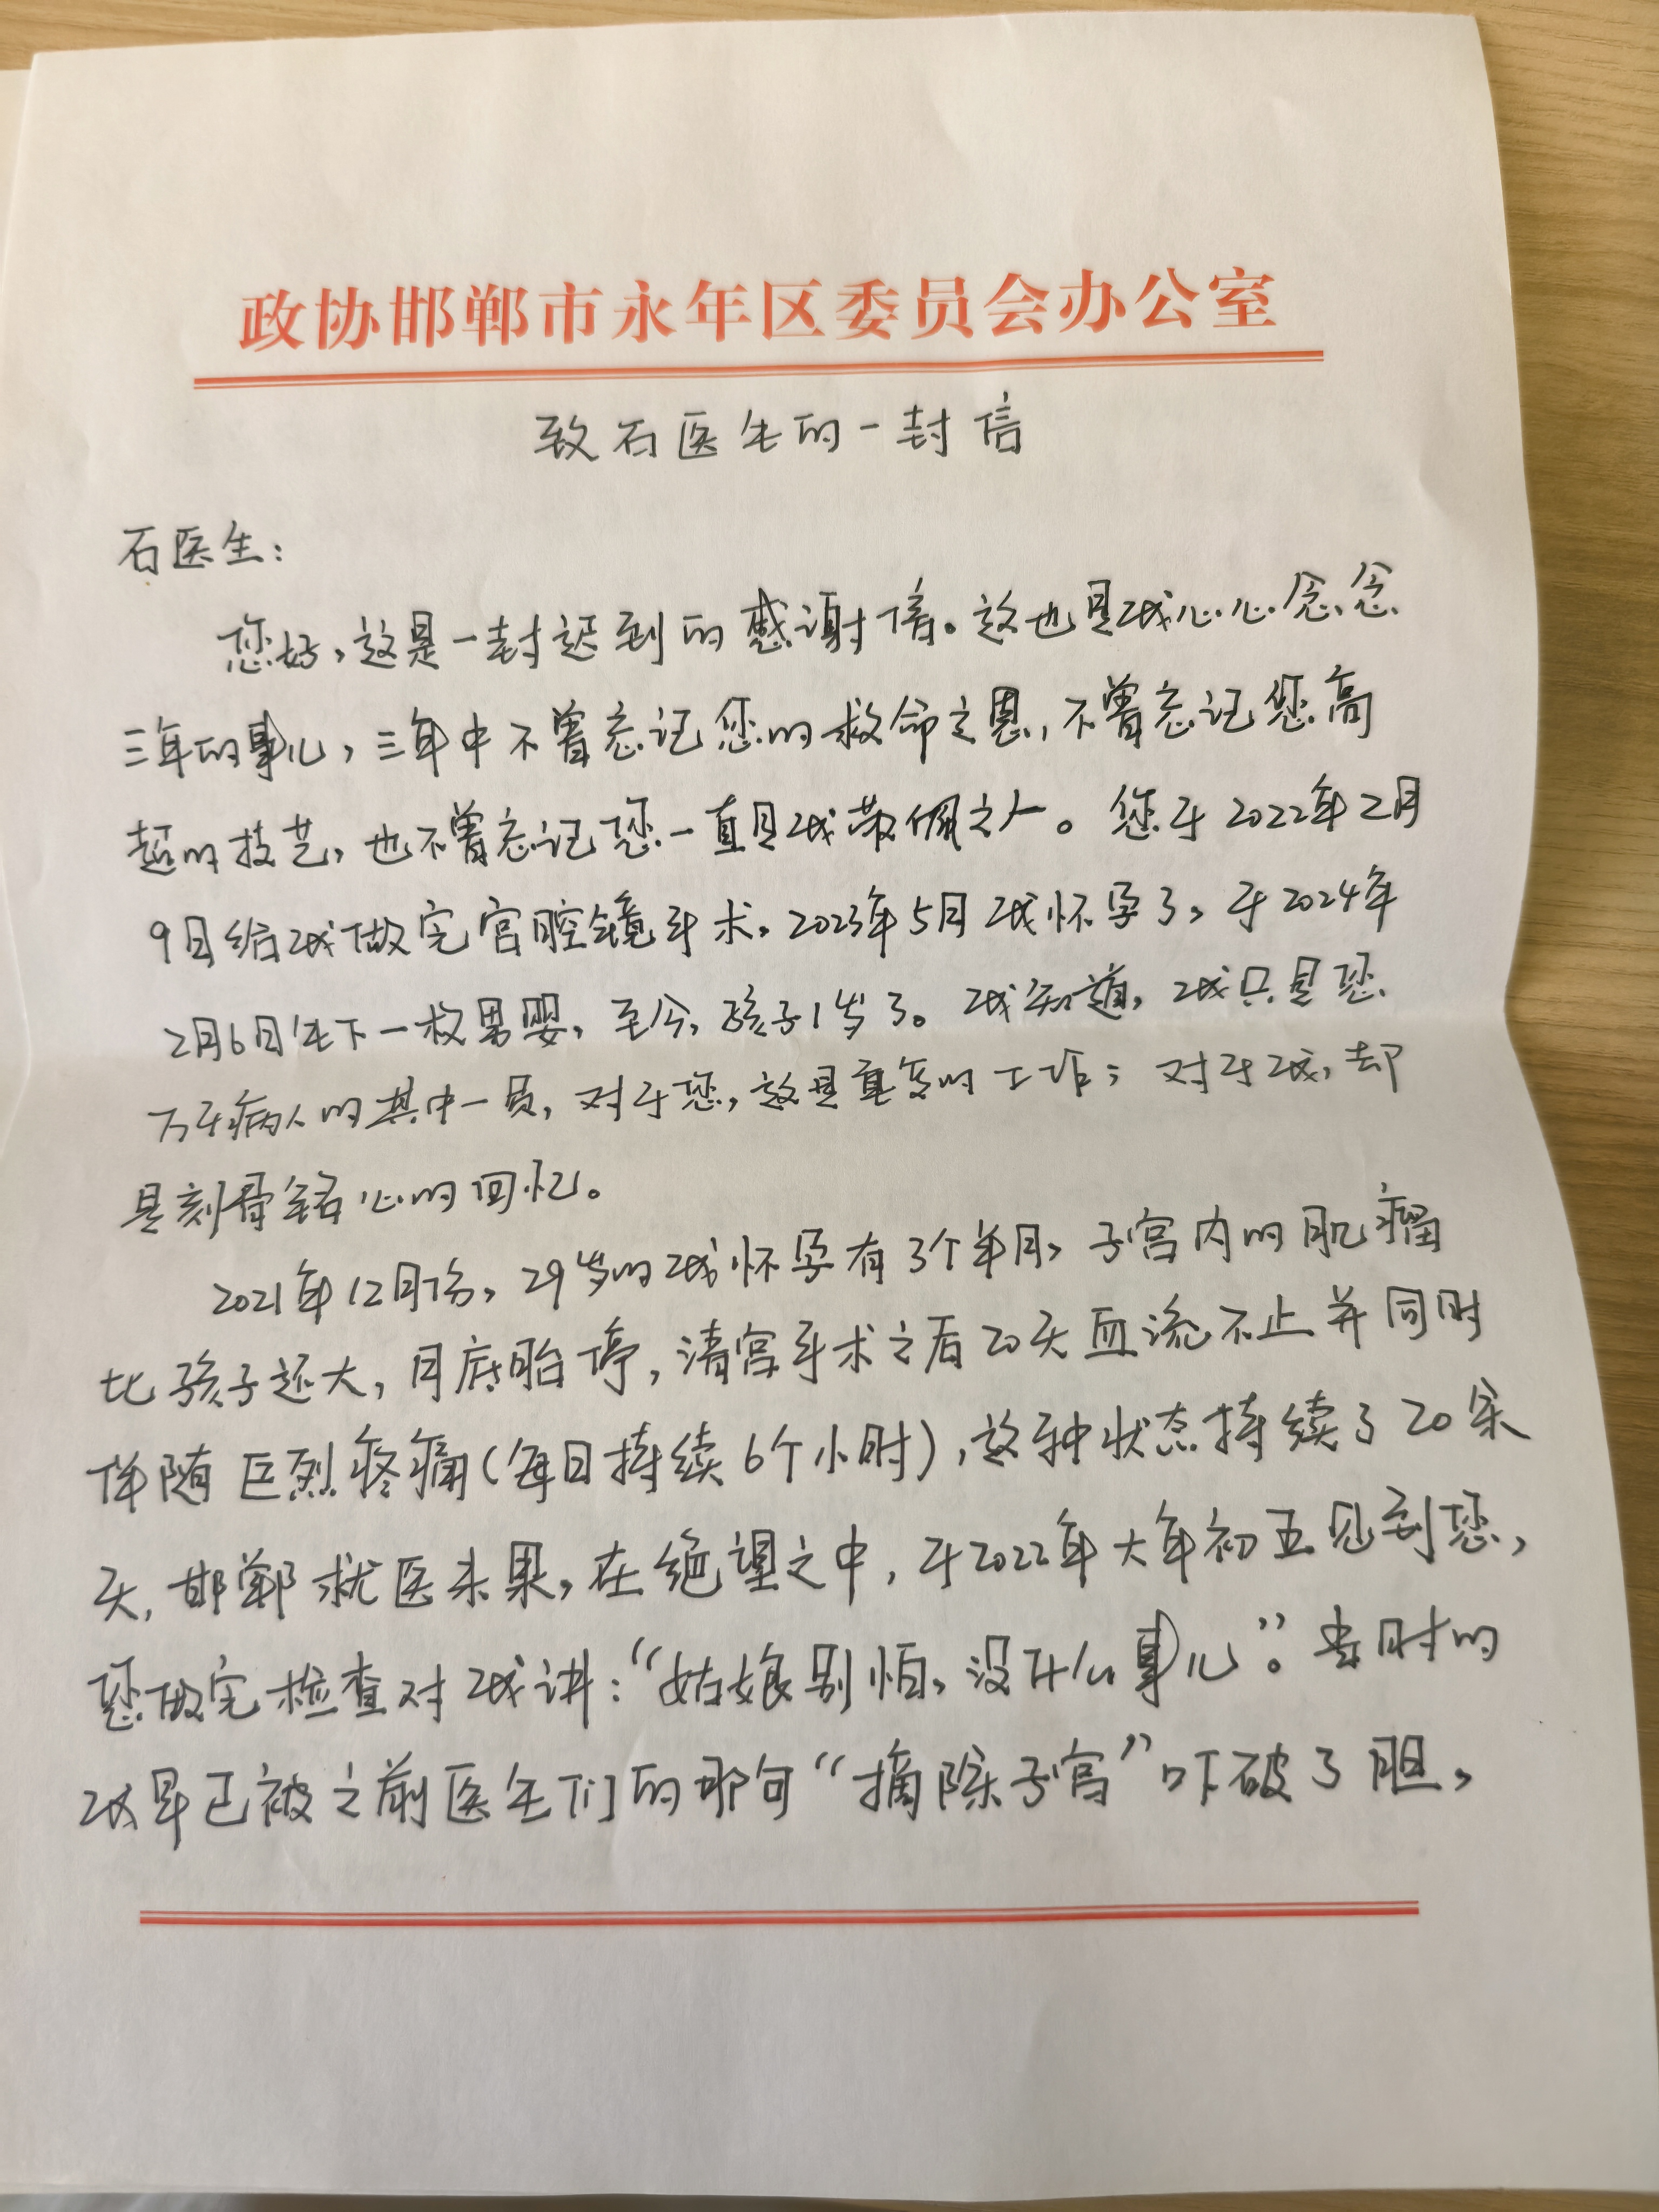 政协邯郸市永年区委员会办公室
致石医生的一封信
石医生：
您好，这是一封迟到的感谢信。这也是我心心念念
三年的事儿，三年中不曾忘记您的救命之恩，不曾忘记您高
超的技艺，也不曾忘记您一直是我敬佩之人。您于2022年2月
9日给我做完宫腔镜手术，2023年5月我怀孕了，于2024年
2月6日生下一枚男婴，至今，孩子1岁了。我知道，我只是您
万千病人的其中一员，对于您，这是重复的工作；对于我，却
是刻骨铭心的回忆。
2021年12月份，29岁的我怀孕有3个半月，子宫内的肌瘤
比孩子还大，月底胎停，清宫手术之后20天血流不止并同时
伴随巨烈疼痛（每日持续6个小时），这种状态持续了20余
天，邯郸求医未果，在绝望之中，于2022年大年初五见到您，
您做完检查对我讲：“姑娘别怕，没什么事儿”。当时的
我早已被之前医生们的那句“摘除子宫”吓破了胆，